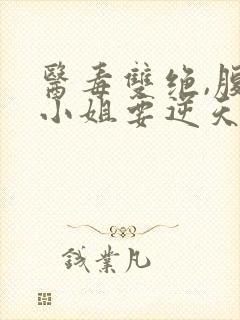 醫毒雙绝,腹
小姐要逆天
錢業凡